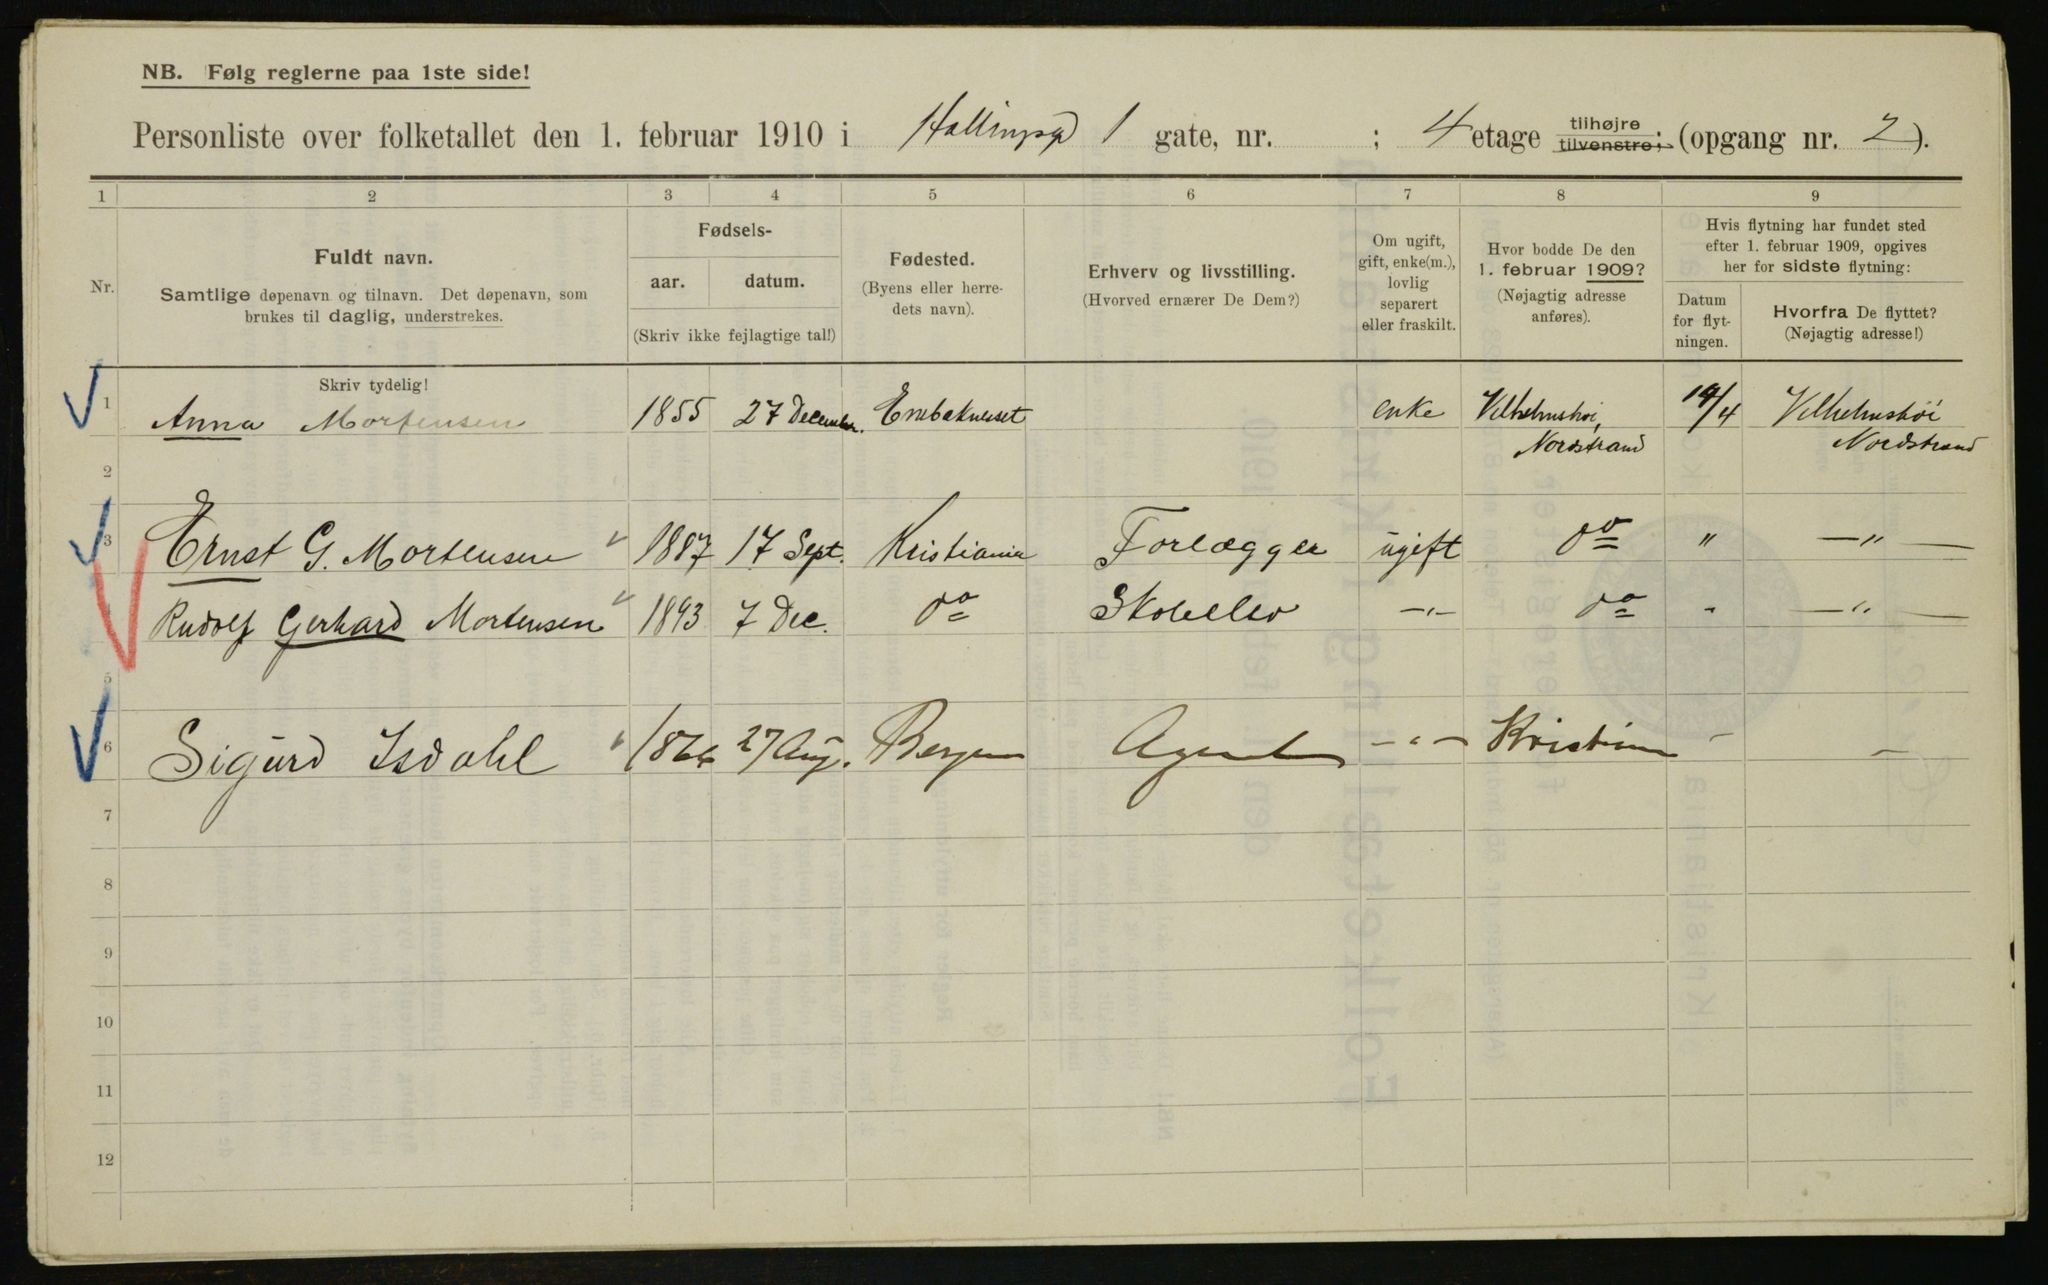 NB. Følg reglerne paa 1ste side!
Personliste over folketallet den 1. februar 1910 i 1 gate, nr. ; 4 etage tilhøjre tilvenstre; (opgang nr. 2).
1 2 3 4 5 6 7 8 9
Nr.
Fuldt navn.
Samtlige døpenavn og tilnavn. Det døpenavn, som
brukes til daglig, understrekes.
Fødsels-
aar. datum.
(Skriv ikke fejlagtige tal!)
Fødested.
(Byens eller herre-
dets navn).
Erhverv og livsstilling.
(Hvorved ernærer De Dem?)
Om ugift,
gift, enke(m.),
lovlig
separert
eller fraskilt.
Hvor bodde De den
1. februar 1909?
(Nøjagtig adresse
anføres).
Hvis flytning har fundet sted
efter 1. februar 1909, opgives
her for sidste flytning:
Datum
for flyt-
ningen.
Hvorfra De flyttet?
(Nøjagtig adresse!)
Skriv tydelig!
1 Anna Mortensen 1855 27 December. enke Vilhelmshøi, /4 Vilhelmshøi
Nordstrand Nordstrand
2
3 Ernst G. Mortensen 1887 17 Sept. Kristiania Forlægger ugift do " —"—
4 Rudolf Gerhard Mortensen 1893 7 Dec. do Skoleelev —"— do " —"—
5
6 Sigurd Isdahl 1866 27 Aug. Bergen Agent —"— Kristiania – –
7
8
9
10
11
12